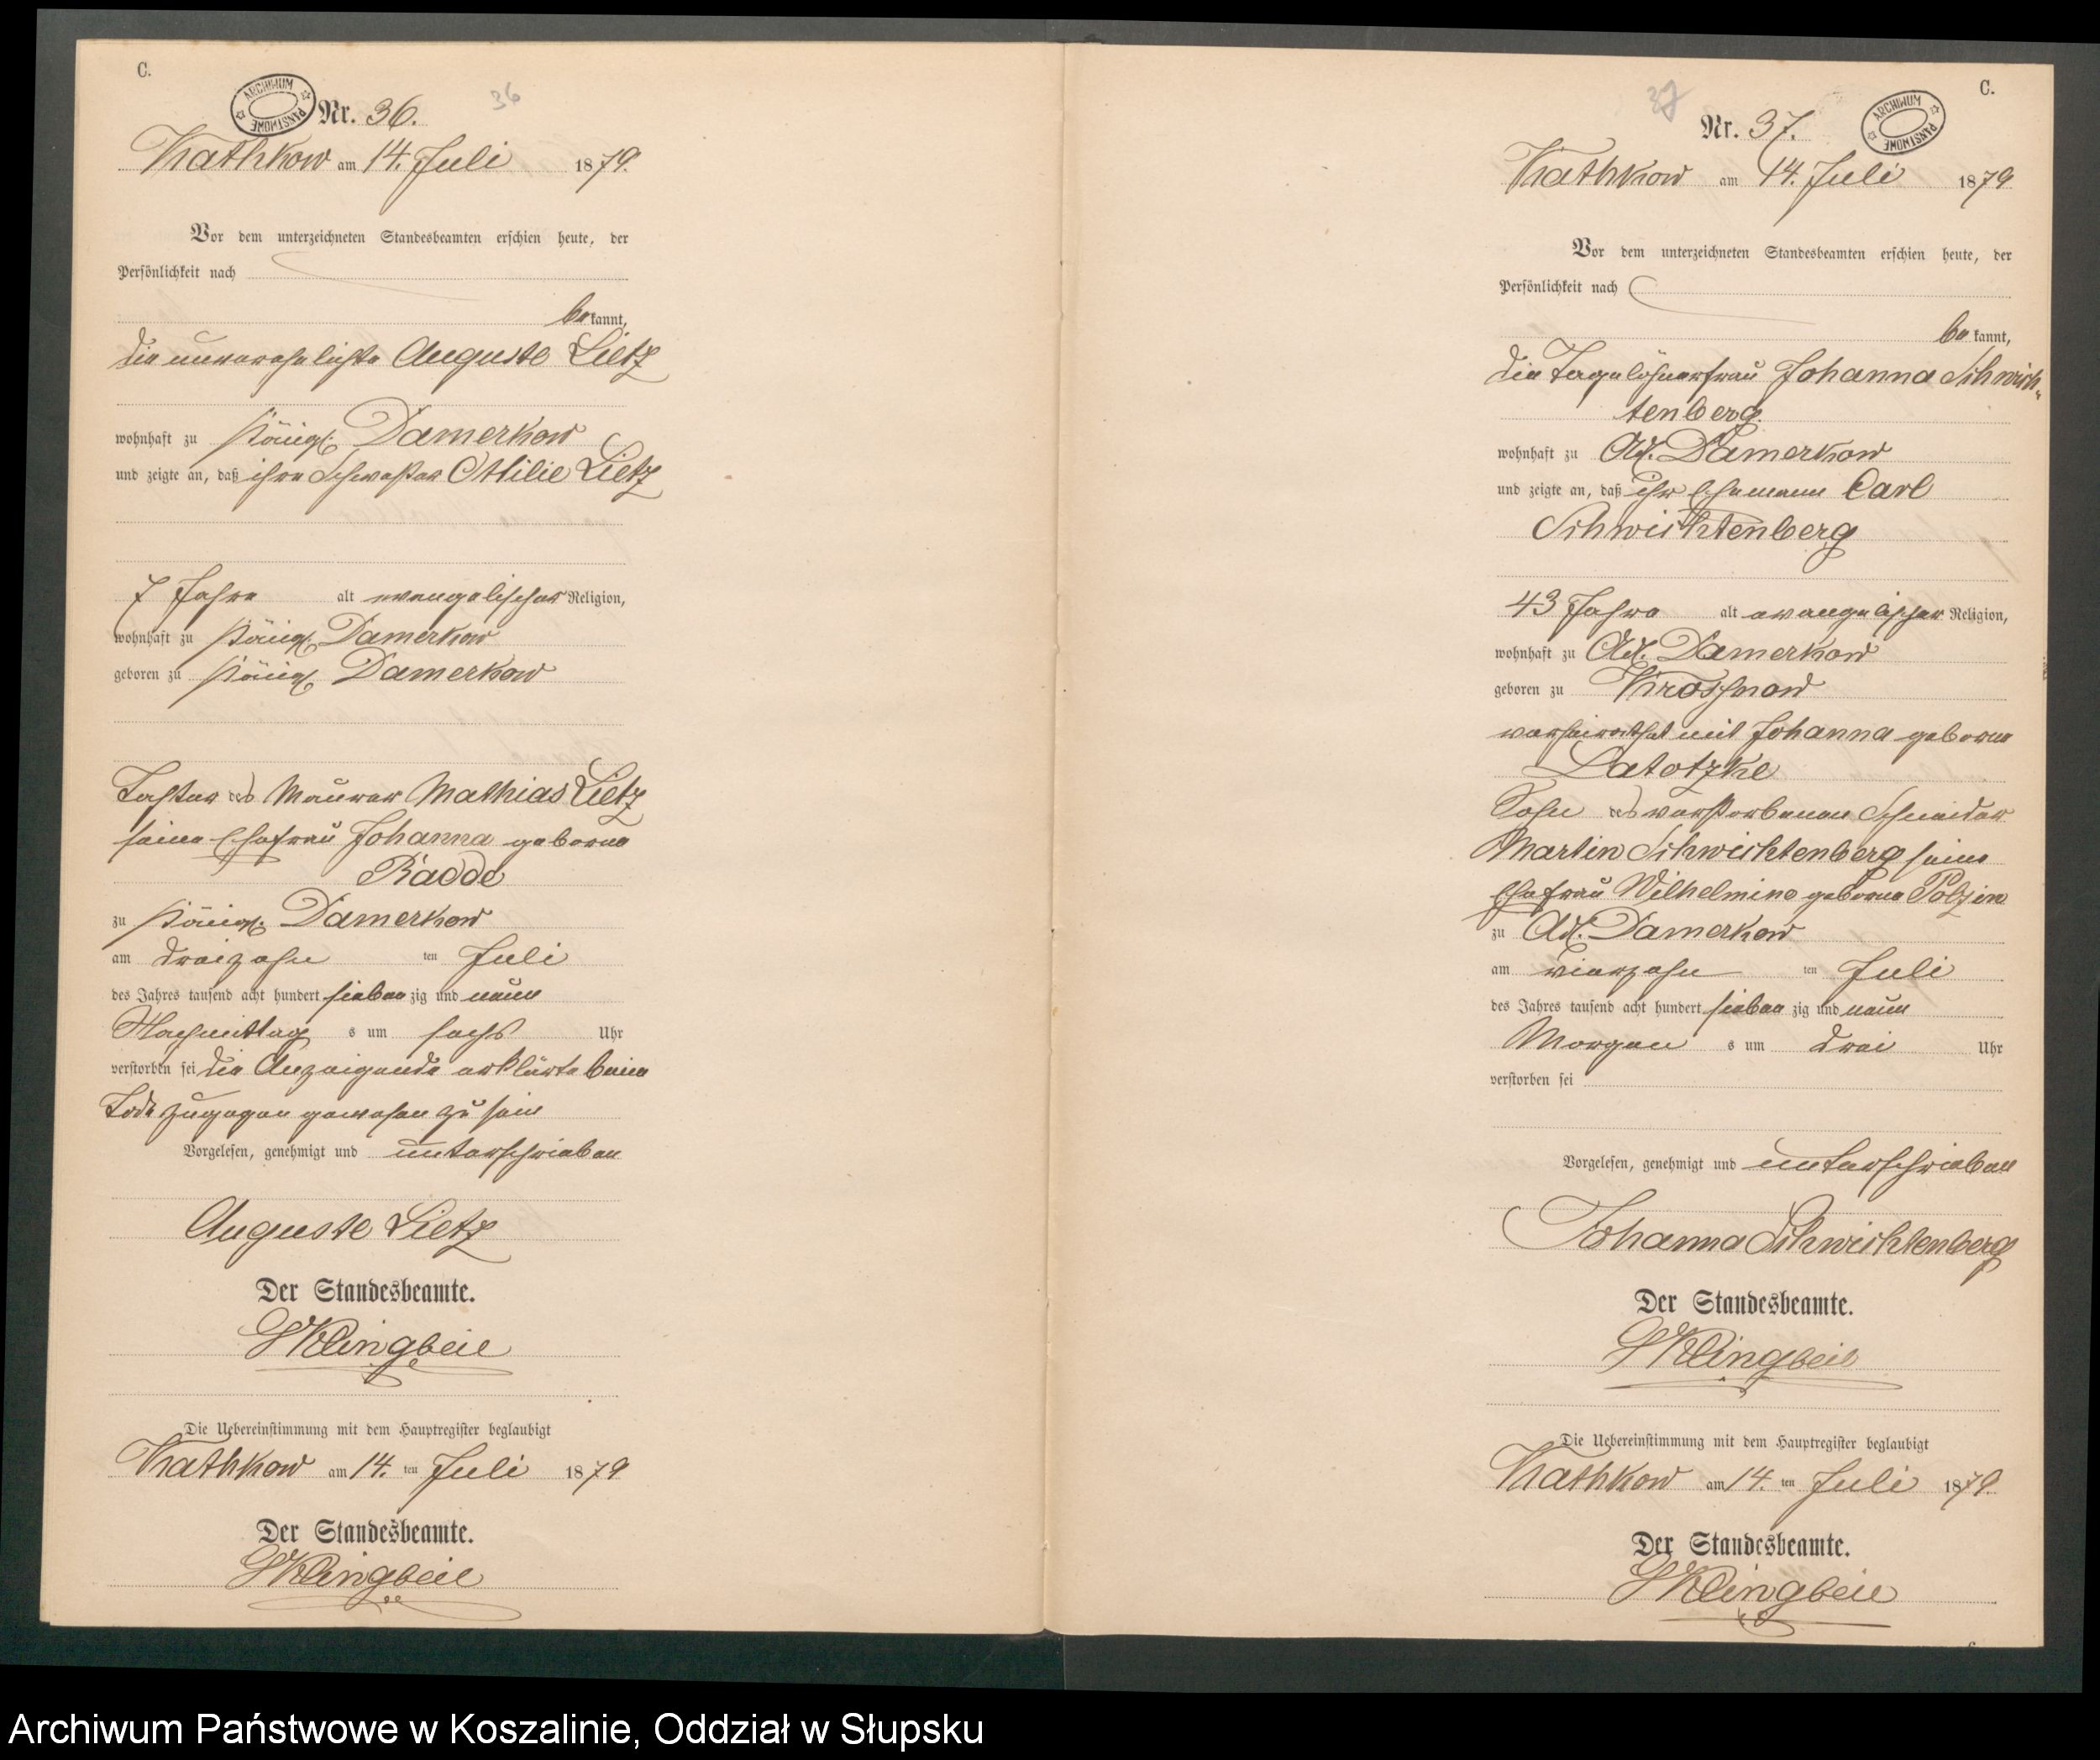 C.
ARCHIWUM PAŃSTWOWE
Nr. 36.
36
Kathkow am 14. Juli 1879.
Vor dem unterzeichneten Standesbeamten erschien heute, der
Persönlichkeit nach
bekannt,
die unverehelichte Auguste Lietz
wohnhaft zu Königl. Damerkow
und zeigte an, daß ihre Schwester Ottilie Lietz
7 Jahre alt evangelischer Religion,
wohnhaft zu Königl. Damerkow
geboren zu Königl. Damerkow
Tochter des Maurer Mathias Lietz
seine Ehefrau Johanna geborne
Radde
zu Königl. Damerkow
am dreizehn ten Juli
des Jahres tausend acht hundert siebenzig und neun
Nachmittag s um sechs Uhr
verstorben sei die Anzeigende erklärte beim
Tode zugegen gewesen zu sein
Vorgelesen, genehmigt und unterschrieben
Auguste Lietz
Der Standesbeamte.
Klingbeil
Die Uebereinstimmung mit dem Hauptregister beglaubigt
Kathkow am 14. ten Juli 1879
Der Standesbeamte.
Klingbeil
C.
37
ARCHIWUM PAŃSTWOWE
Nr. 37.
Kathkow am 14. Juli 1879
Vor dem unterzeichneten Standesbeamten erschien heute, der
Persönlichkeit nach
bekannt,
die Tagelöhnerfrau Johanna Schwich-
tenberg.
wohnhaft zu Adl. Damerkow
und zeigte an, daß ihr Ehemann Carl
Schwichtenberg
43 Jahre alt evangelischer Religion,
wohnhaft zu Adl. Damerkow
geboren zu Kroschnow
verheirathet mit Johanna geborne
Latotzke
Sohn des verstorbenen Schneider
Martin Schwichtenberg seine
Ehefrau Wilhelmine geborne Polzin
zu Adl. Damerkow
am vierzehn ten Juli
des Jahres tausend acht hundert siebenzig und neun
Morgen s um drei Uhr
verstorben sei
Vorgelesen, genehmigt und unterschrieben
Johanna Schwichtenberg
Der Standesbeamte.
Klingbeil
Die Uebereinstimmung mit dem Hauptregister beglaubigt
Kathkow am 14. ten Juli 1879.
Der Standesbeamte.
Klingbeil
Archiwum Państwowe w Koszalinie, Oddział w Słupsku